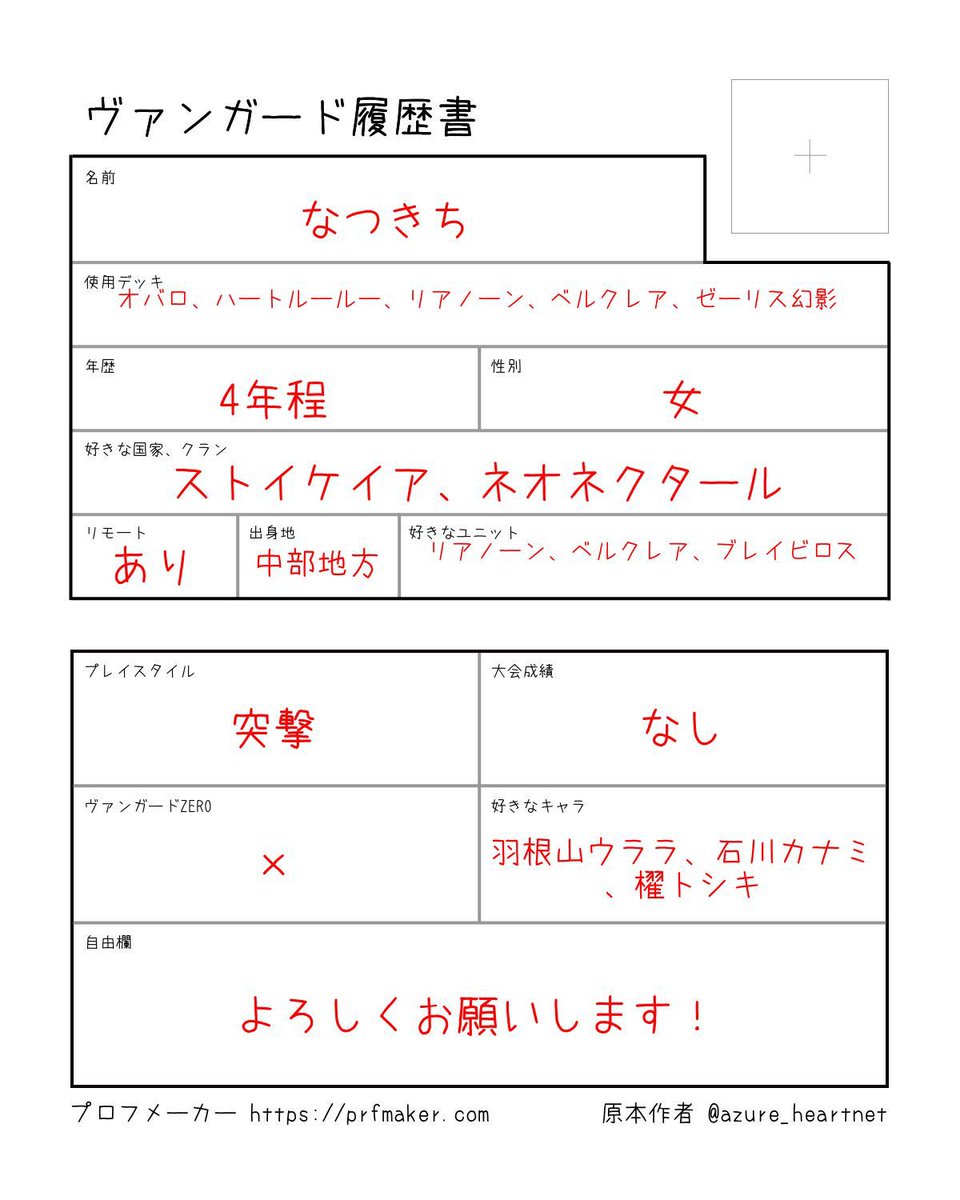 ヴァンガード履歴書
名前
なつきち
使用デッキ
オバロ、ハートルールー、リアノーン、ベルクレア、ゼーリス幻影
年歴
4年程
性別
女
好きな国家、クラン
ストイケイア、ネオネクタール
リモート
あり
出身地
中部地方
好きなユニット
リアノーン、ベルクレア、ブレイビロス
プレイスタイル
突撃
大会成績
なし
ヴァンガードZERO
×
好きなキャラ
羽根山ウララ、石川カナミ
、櫂トシキ
自由欄
よろしくお願いします！
プロフメーカー https://prfmaker.com
原本作者 @azure_heartnet